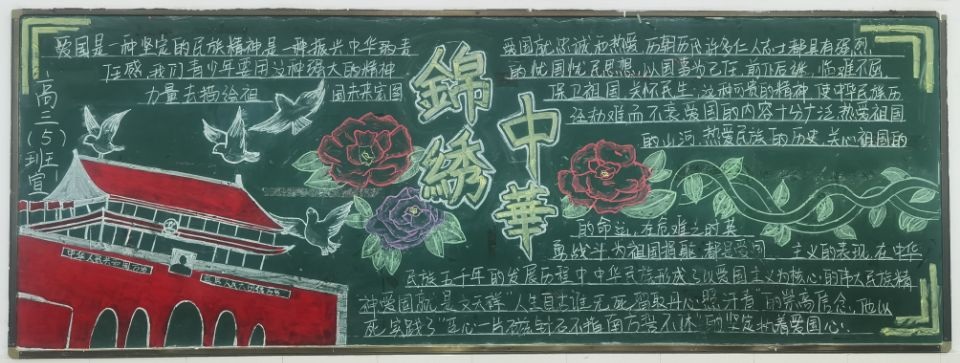 爱国是一种坚定的民族精神是一种振兴中华的责
任感,我们青少年要用这种强大的精神
力量去描绘祖国未来宏图
高二(5)班宣
錦绣
中華
爱国就忠诚和热爱 历朝历代许多仁人志士都具有强烈
的忧国忧民思想,以国事为己任,前仆后继,临难不屈
保卫祖国,关怀民生,这种可贵的精神,使中华民族历
经劫难而不衰爱国的内容十分广泛,热爱祖国
的山河,热爱民族的历史 关心祖国的
的命运,在危难之时英
勇战斗为祖国捐躯 都是爱国主义的表现,在中华
民族五千年的发展历程中中华民族形成了以爱国主义为核心的伟大民族精
神爱国就是文天祥"人生自古谁无死,留取丹心照汗青"的崇高信念,他以
死实践了"臣心一片磁针石不指南方誓不休"的坚定执着爱国心.
中华人民共和国万岁